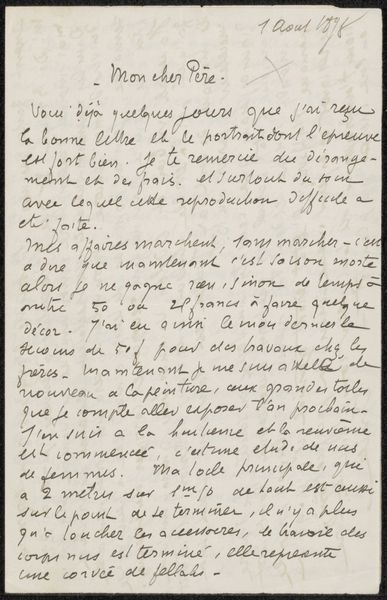 1 Aout 1898
- Mon cher Père.
Voici déjà quelques jours que j'ai reçu
ta bonne lettre et le portrait dont l'epreuve
est fort bien. Je te remercie du dérange-
ment et des frais. et surtout du soin
avec lequel cette reproduction difficile a
eté faite.
Mes affaires marchent, sans marcher - c'est
a dire que maintenant c'est saison morte
alors je ne gagne rien, sinon de temps à
autre 50 ou 25 francs à faire quelque
décor. J'ai eu ainsi le mois dernier le
secours de 50f pour des travaux chez les
frères - maintenant je me suis attelé de
nouveau a la peinture, aux grandes toiles
que je compte aller exposer l'an prochain -
J'en suis a la huitieme et la neuvième
est commencée, c'est une etude de nus
de femmes. Ma toile principale, qui
a 2 metres sur 1m50 de haut est aussi
sur le point de se terminer, il n'y a plus
qu'a toucher les accessoires, le travail des
corps nus est terminé, elle represente
une corvée de fellahs -